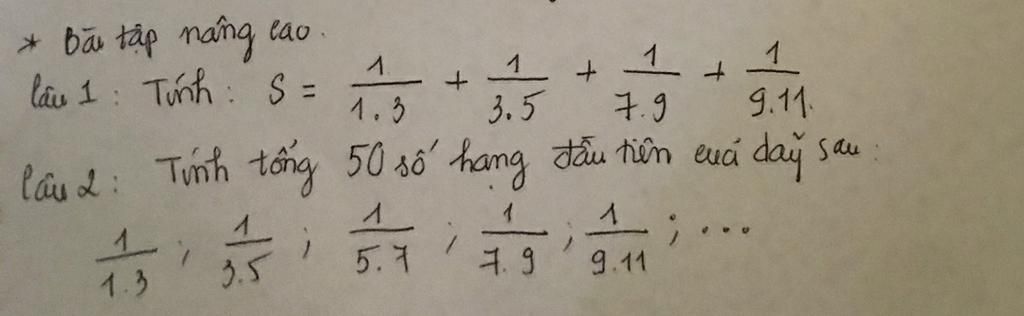 * Bài tập nâng cao.
Câu 1: Tính: S = 1/1.3 + 1/3.5 + 1/7.9 + 1/9.11.
Câu 2: Tính tổng 50 số hạng đầu tiên cuả daỹ sau:
1/1.3 ; 1/3.5 ; 1/5.7 ; 1/7.9 ; 1/9.11 ; ...